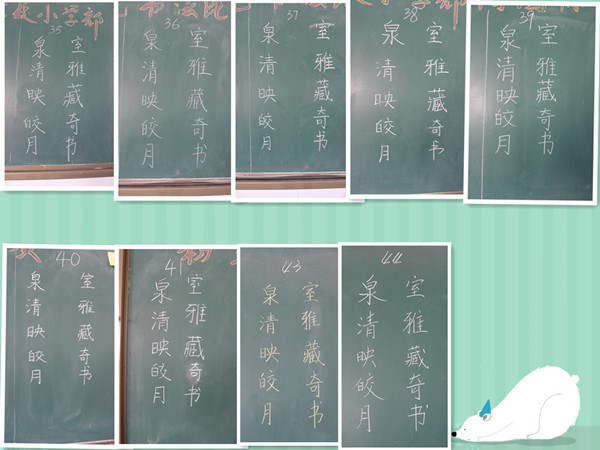 小学部
35
室雅藏奇书
泉清映皎月
书法比
36
室雅藏奇书
泉清映皎月
37
室雅藏奇书
泉清映皎月
小学部
38
室雅藏奇书
泉清映皎月
39
室雅藏奇书
泉清映皎月
40
室雅藏奇书
泉清映皎月
41
室雅藏奇书
泉清映皎月
43
室雅藏奇书
泉清映皎月
44
室雅藏奇书
泉清映皎月